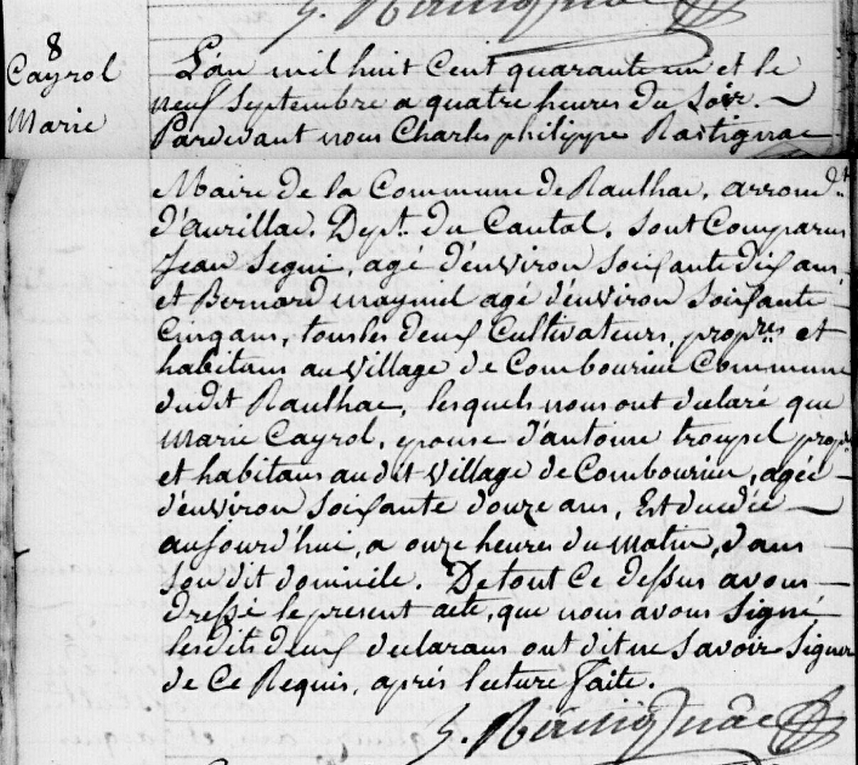 8
Cayrol
Marie
L'an mil huit Cent quarante un et le
neuf Septembre a quatre heures du Soir.
Pardevant nous Charles philippe Rastignac
Maire de la Commune de Raulhac, arrondt
d'aurillac. Dept. du Cantal. Sont Comparus
Jean Segui, agé d'environ Soixante dix ans
et Bernard maymil agé d'environ Soixante
Cinq ans, tous les deux Cultivateurs, proprres et
habitans au village de Combourieu Commune
dudit Raulhac, lesquels nous ont declaré que
Marie Cayrol, epouse d'antoine troupel propre
et habitans audit village de Combourieu, agée
d'environ Soixante douze ans, Est decedée
aujourd'hui, a onze heures du matin, dans
Son dit domicile. De tout Ce dessus avons
dressé le present acte, que nous avons Signé
lesdits deux declarans ont dit ne Savoir Signer
de Ce Requis, aprés lecture faite.